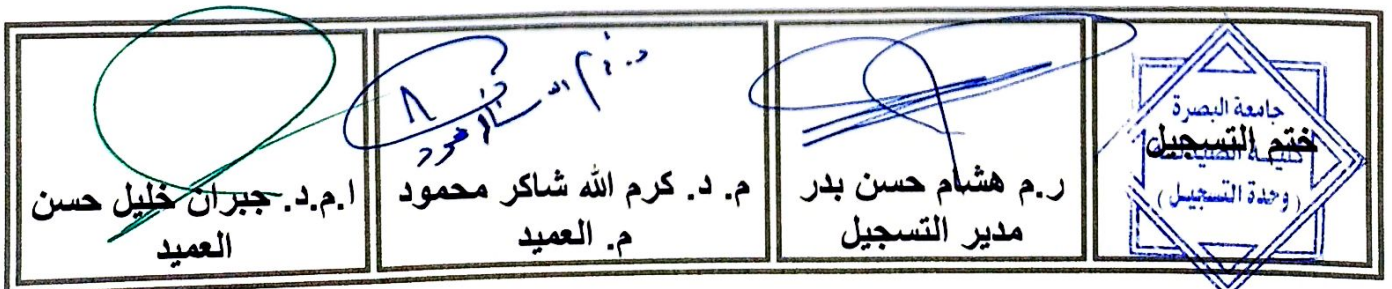 جامعة البصرة
ختم التسجيل
كلية الصيدلة
(وحدة التسجيل)
ر.م هشام حسن بدر
مدير التسجيل
م. د. كرم الله شاكر محمود
م. العميد
ا.م.د. جبران خليل حسن
العميد